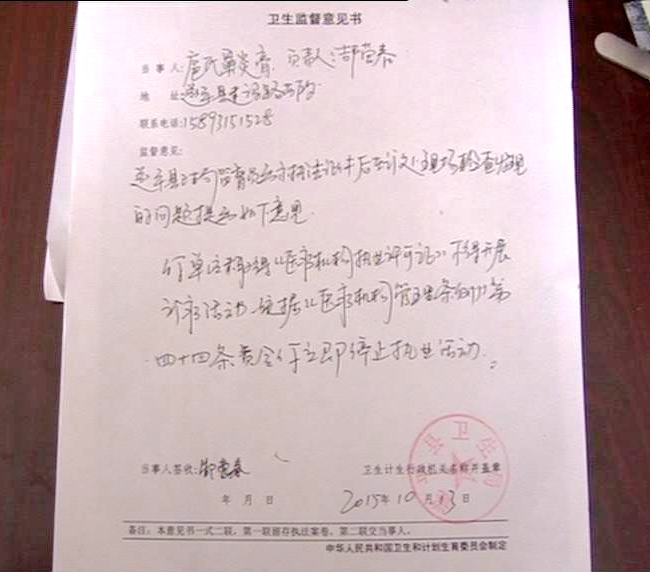 卫生监督意见书
当事人:唐氏鼻炎膏 负责人:郜营春
地 址:
联系电话:15893151528
监督意见:
监督员出示执法证件后在 现场检查发现
的问题提出如下意见
你单位未取得《医疗机构执业许可证》不得开展
诊疗活动 依据《医疗机构管理条例》第
四十四条责令你立即停止执业活动。
当事人签收:郜营春
卫生计生行政机关名称并盖章
年 月 日
2015年10月13日
县卫生局
备注:本意见书一式二联,第一联留存执法案卷,第二联交当事人。
中华人民共和国卫生和计划生育委员会制定